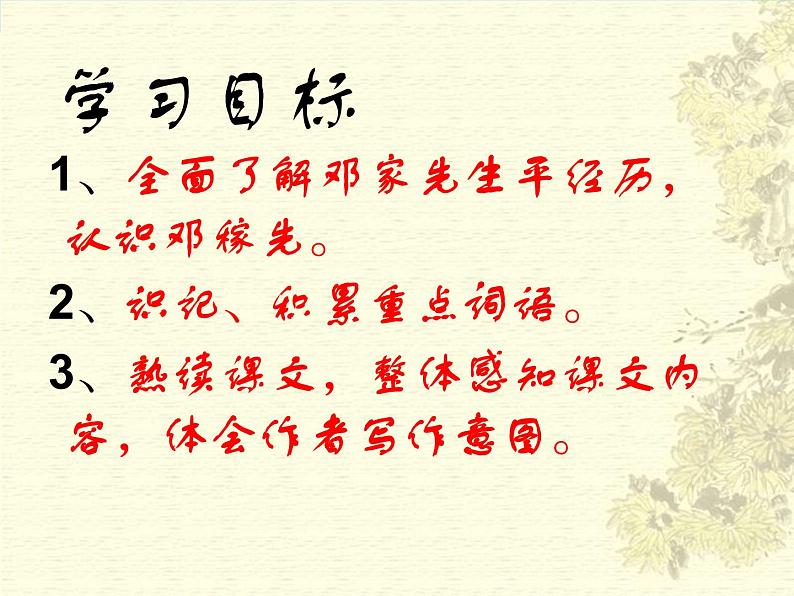 学习目标
1、全面了解邓家先生平经历，
认识邓稼先。
2、识记、积累重点词语。
3、熟读课文，整体感知课文内
容，体会作者写作意图。